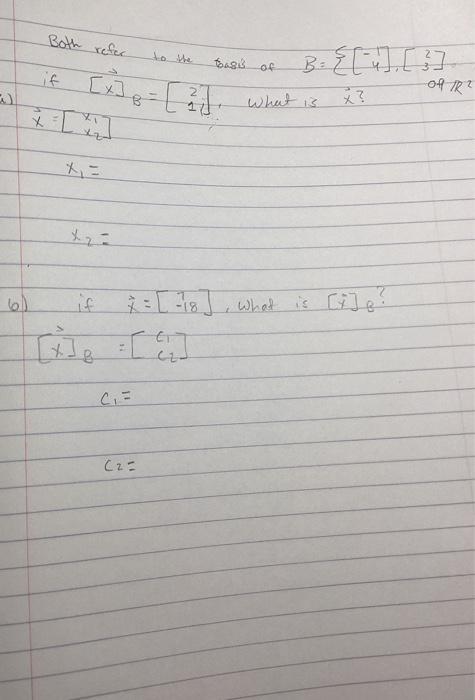 Both refer to the basis of B = {[-1 4], [2 3]} of R²
a) if [x⃗]_B = [2 1], what is x⃗?
x⃗ = [x₁ x₂]
x₁ =
x₂ =
b) if x⃗ = [7 -18], what is [x⃗]_B?
[x⃗]_B = [c₁ c₂]
c₁ =
c₂ =